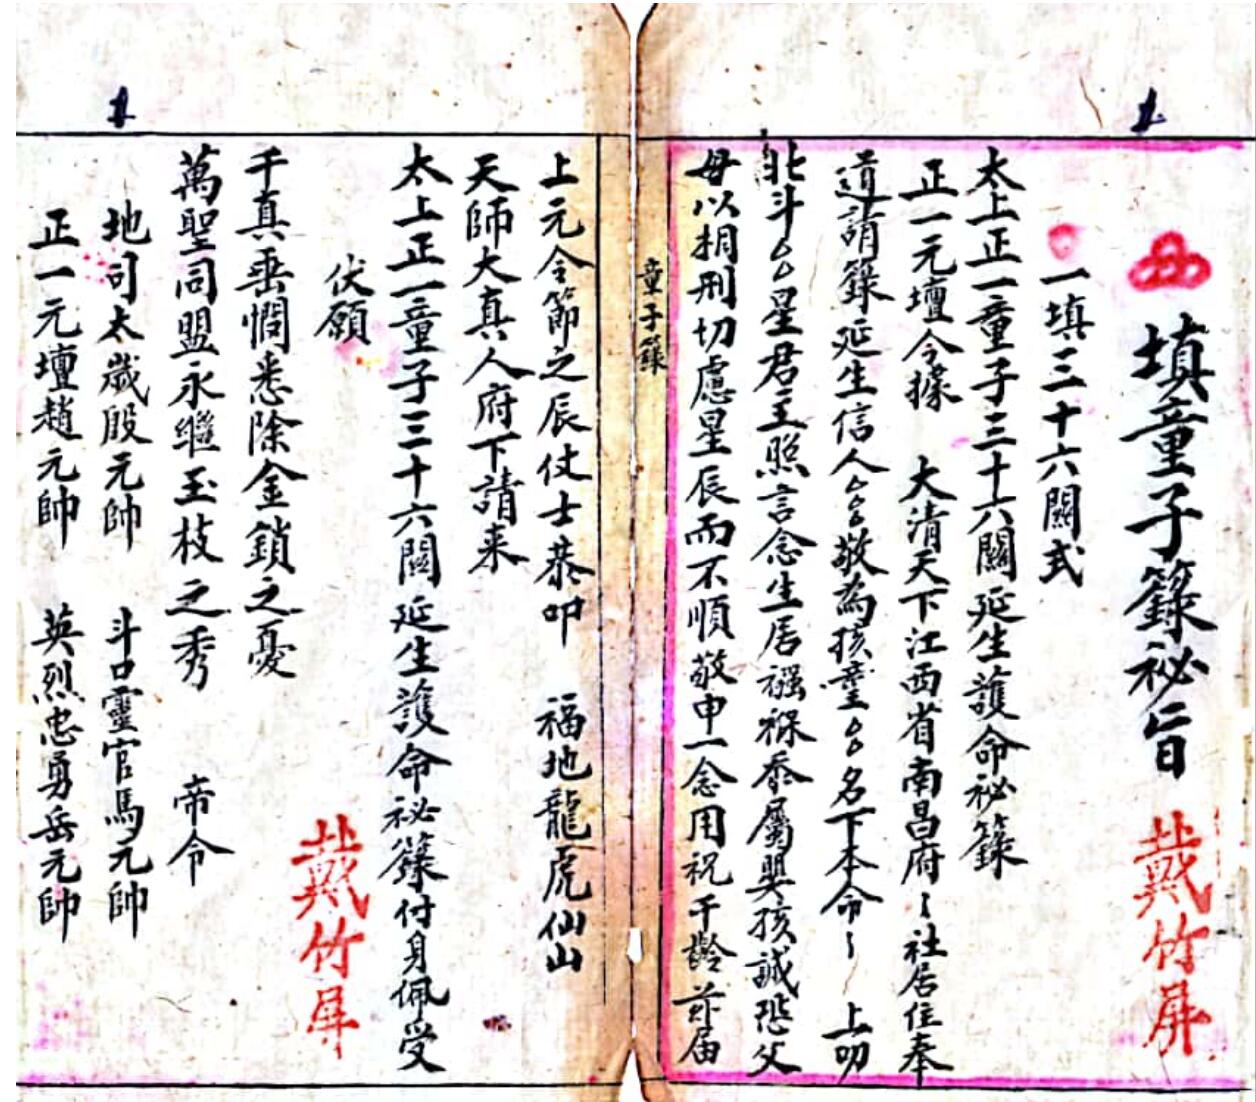 填童子籙秘旨
戴竹屏
一填三十六關式
太上正一童子三十六關延生護命秘籙
正一元壇今據 大清天下江西省南昌府〻社居住奉
道請籙延生信人厶厶敬為孩童厶厶名下本命〻 上叩
北斗厶厶星君主照言念生居襁褓忝屬嬰孩誠恐父
母以相刑切慮星辰而不順敬申一念用祝千齡茲届
童子籙
上元令節之辰仗士恭叩 福地龍虎仙山
天師大真人府下請来
太上正一童子三十六關延生護命秘籙付身佩受
伏願
戴竹屏
千真垂憫悉除金鎖之憂
萬聖同盟永继玉枝之秀 帝令
地司太歲殷元帥 斗口靈官馬元帥
正一元壇趙元帥 英烈忠勇岳元帥